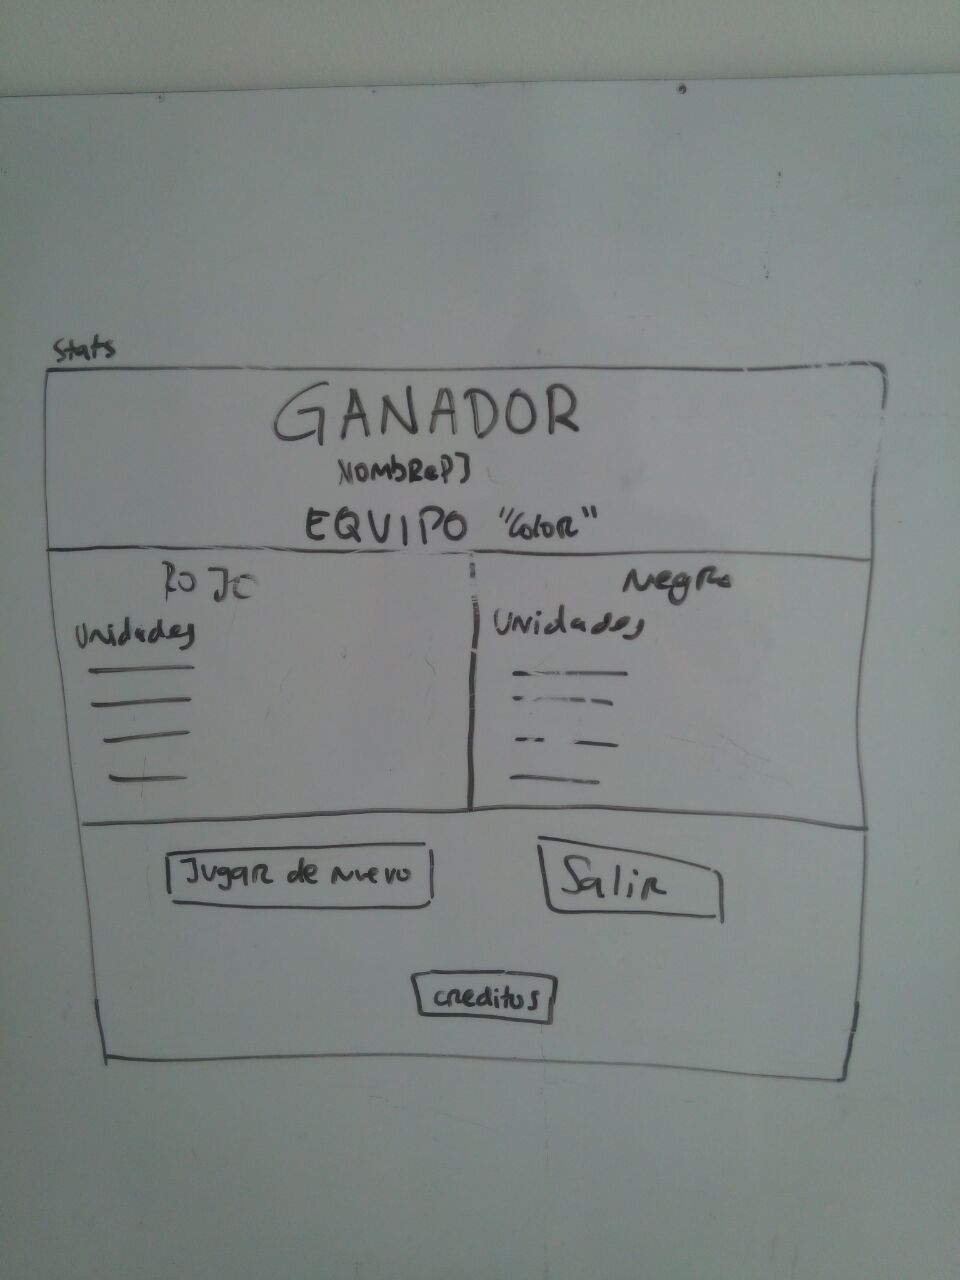 Stats
GANADOR
NombRePJ
EQUIPO "Color"
ROJO
Unidades
NegRo
Unidades
Jugar de nuevo
Salir
creditos